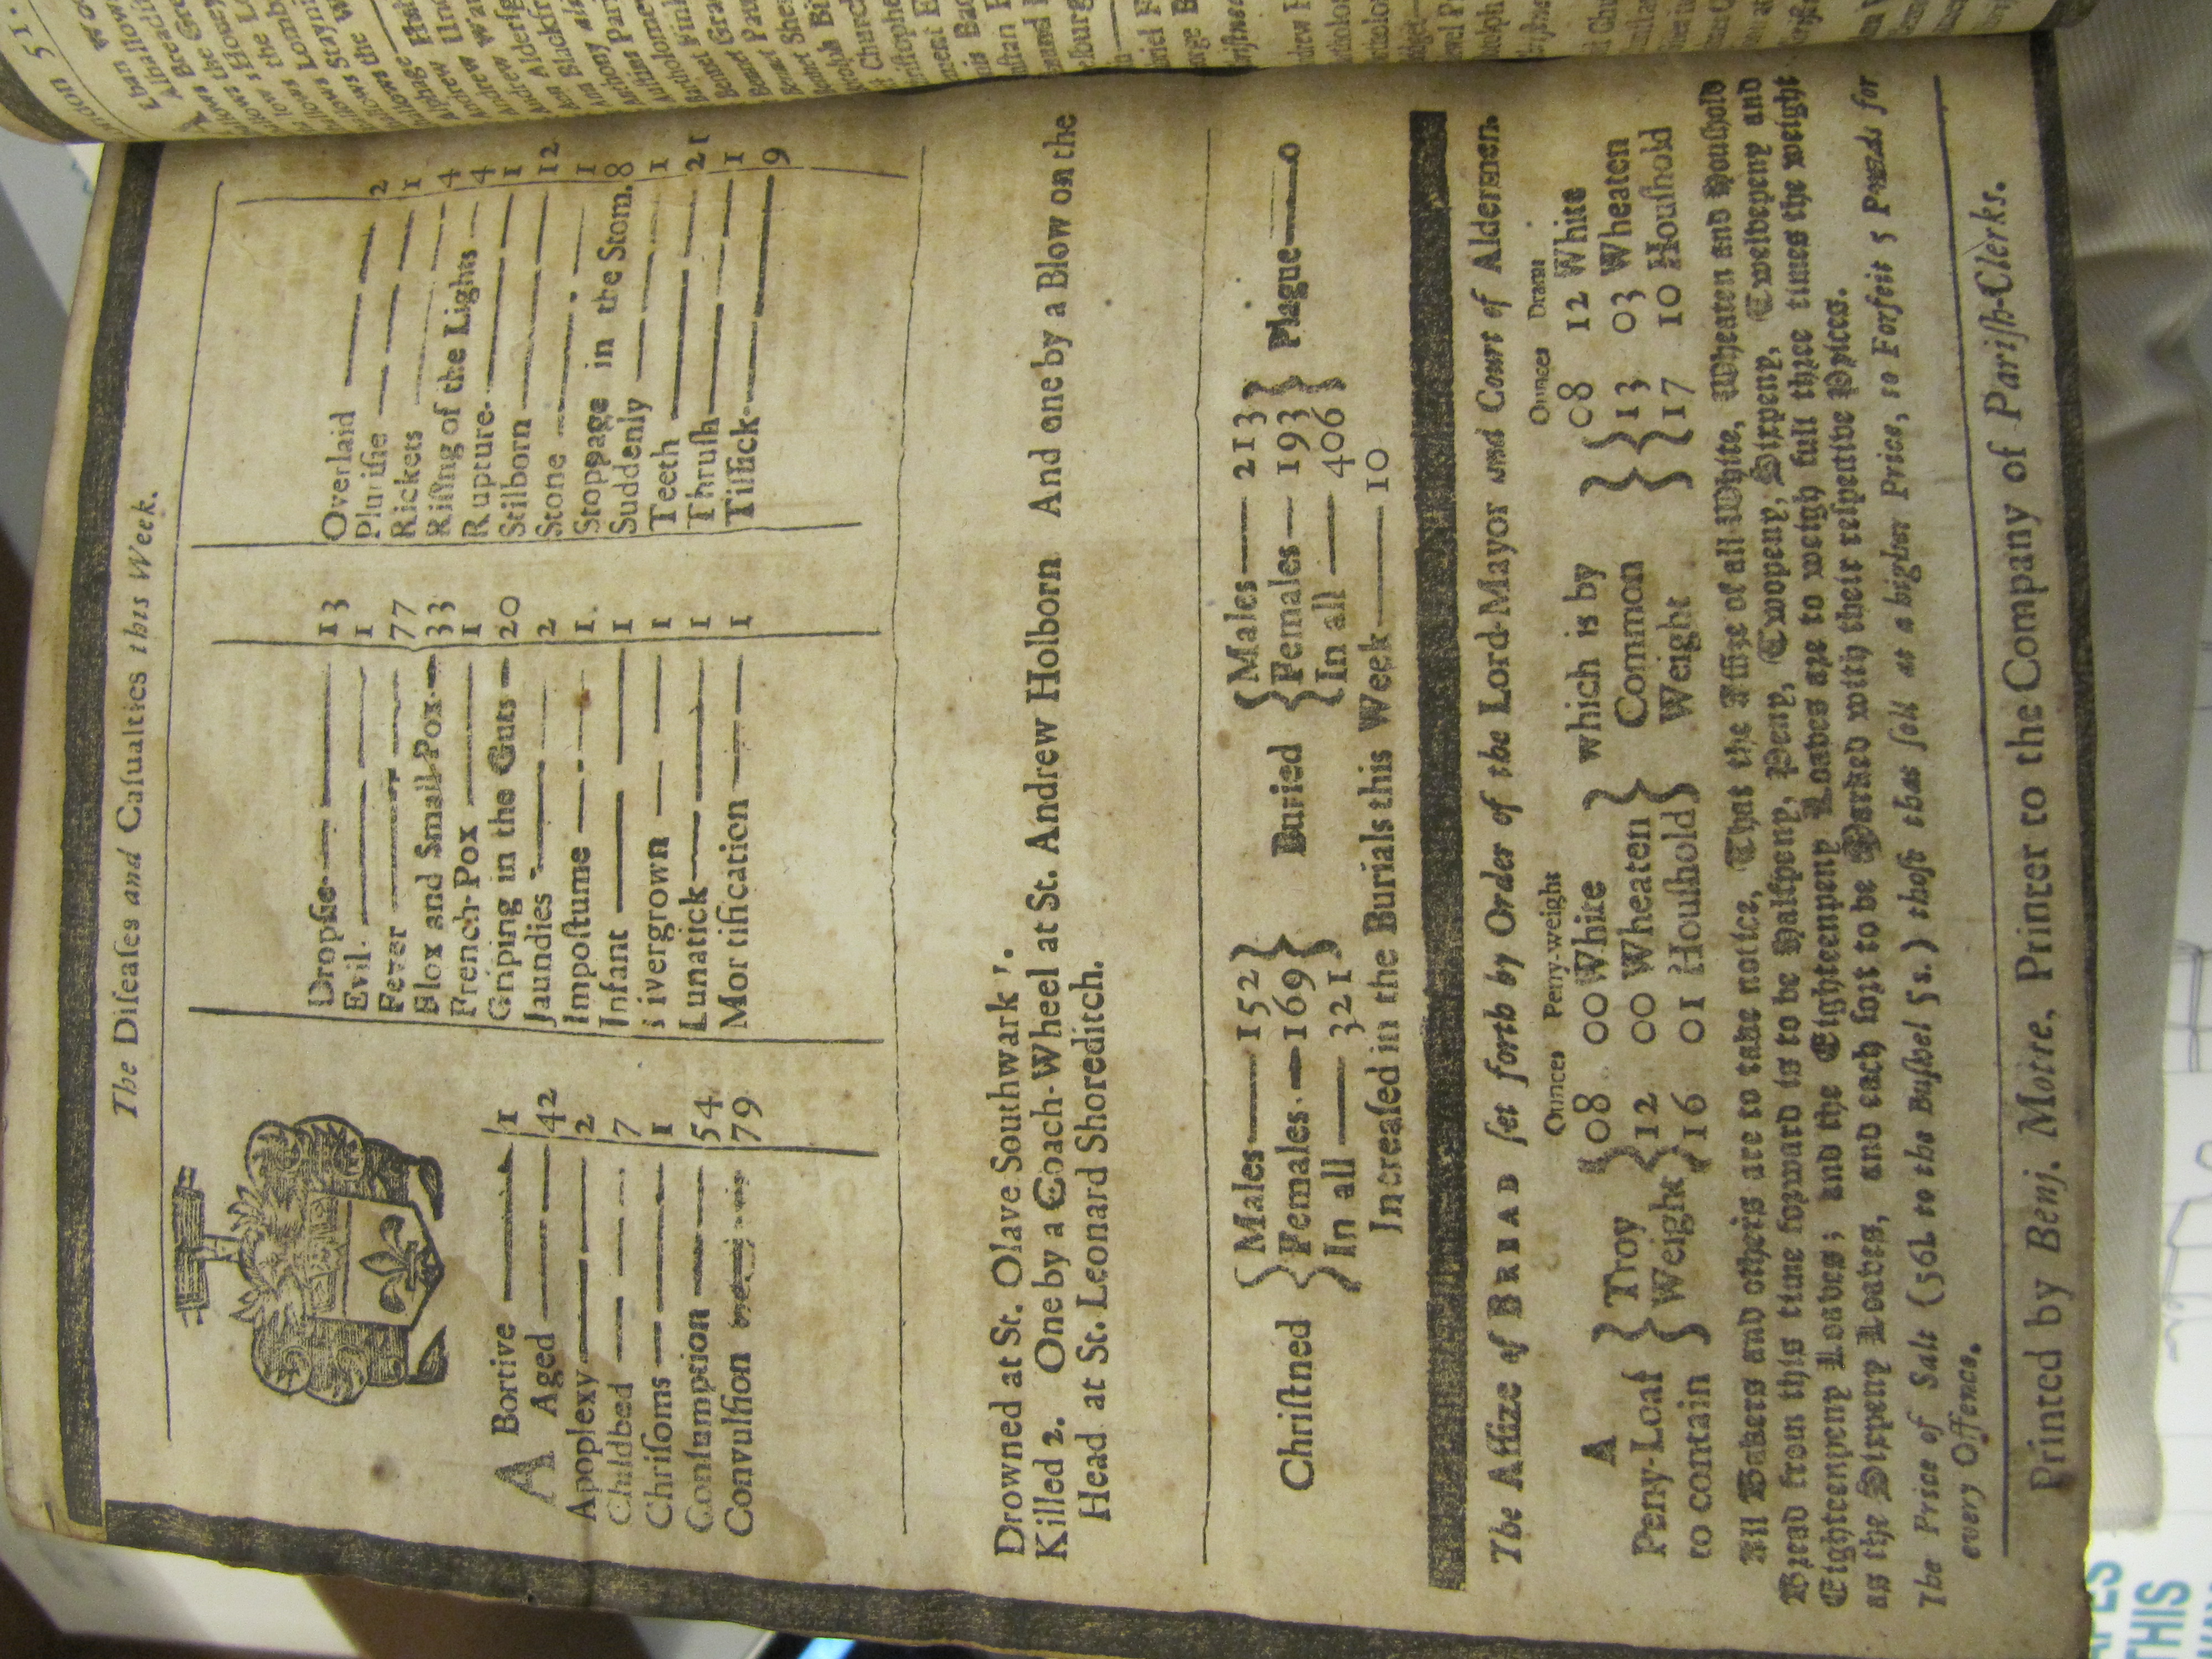 The Diſeaſes and Caſualties this Week.
A Bortive 1
Aged 42
Apoplexy 2
Childbed 7
Chriſoms 1
Conſumption 54
Convulſion 79
Dropſie 13
Evil 1
Fever 77
Flox and Small-Pox 33
French-Pox 1
Griping in the Guts 20
Jaundies 2
Impoſtume 1
Infant 1
Livergrown 1
Lunatick 1
Mortification 1
Overlaid 2
Pluriſie 1
Rickets 4
Riſing of the Lights 4
Rupture 1
Stilborn 12
Stone 1
Stoppage in the Stom. 8
Suddenly 1
Teeth 21
Thruſh 1
Tiſſick 9
Drowned at St. Olave Southwark 1.
Killed 2. One by a Coach-Wheel at St. Andrew Holborn And one by a Blow on the
Head at St. Leonard Shoreditch.
Chriſtned { Males 152 Females 169 In all 321 } Buried { Males 213 Females 193 In all 406 } Plague 0
Increaſed in the Burials this Week 10
The Aſſize of BREAD ſet forth by Order of the Lord-Mayor and Court of Aldermen.
Ounces Peny-weight Ounces Drams
A } Troy { 08 00 White } which is by { 08 12 White
Peny-Loaf } Weight { 12 00 Wheaten } Common { 13 03 Wheaten
to contain { 16 01 Houſhold } Weight { 17 10 Houſhold
All Bakers and others are to take notice, That the Aſſize of all White, Wheaten and Houſhold
Bread from this time forward is to be Halfpeny, Peny, Twopeny, Sixpeny, Twelvepeny and
Eighteenpeny Loaves; and the Eighteenpeny Loaves are to weigh full three times the weight
as the Sixpeny Loaves, and each ſort to be Marked with their reſpective Prices.
The Price of Salt (56l. to the Buſhel 5s.) thoſe that ſell at a higher Price, to Forfeit 5 Pounds for
every Offence.
Printed by Benj. Motte, Printer to the Company of Pariſh-Clerks.